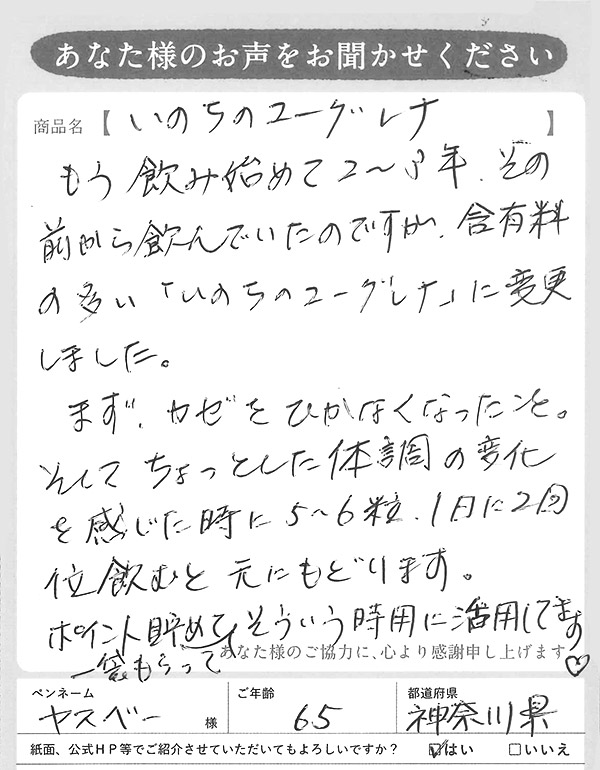 あなた様のお声をお聞かせください
商品名【いのちのユーグレナ】
もう飲み始めて2〜3年、その
前から飲んでいたのですが、含有料
の多い「いのちのユーグレナ」に変更
しました。
まず、カゼをひかなくなったこと。
そしてちょっとした体調の変化
を感じた時に5〜6粒、1日に2回
位飲むと元にもどります。
ポイント貯めてそういう時用に活用してます♡
一袋もらって
あなた様のご協力に、心より感謝申し上げます
ペンネーム ご年齢 都道府県
ヤスベー様 65 神奈川県
紙面、公式HP等でご紹介させていただいてもよろしいですか？ ☑はい □いいえ